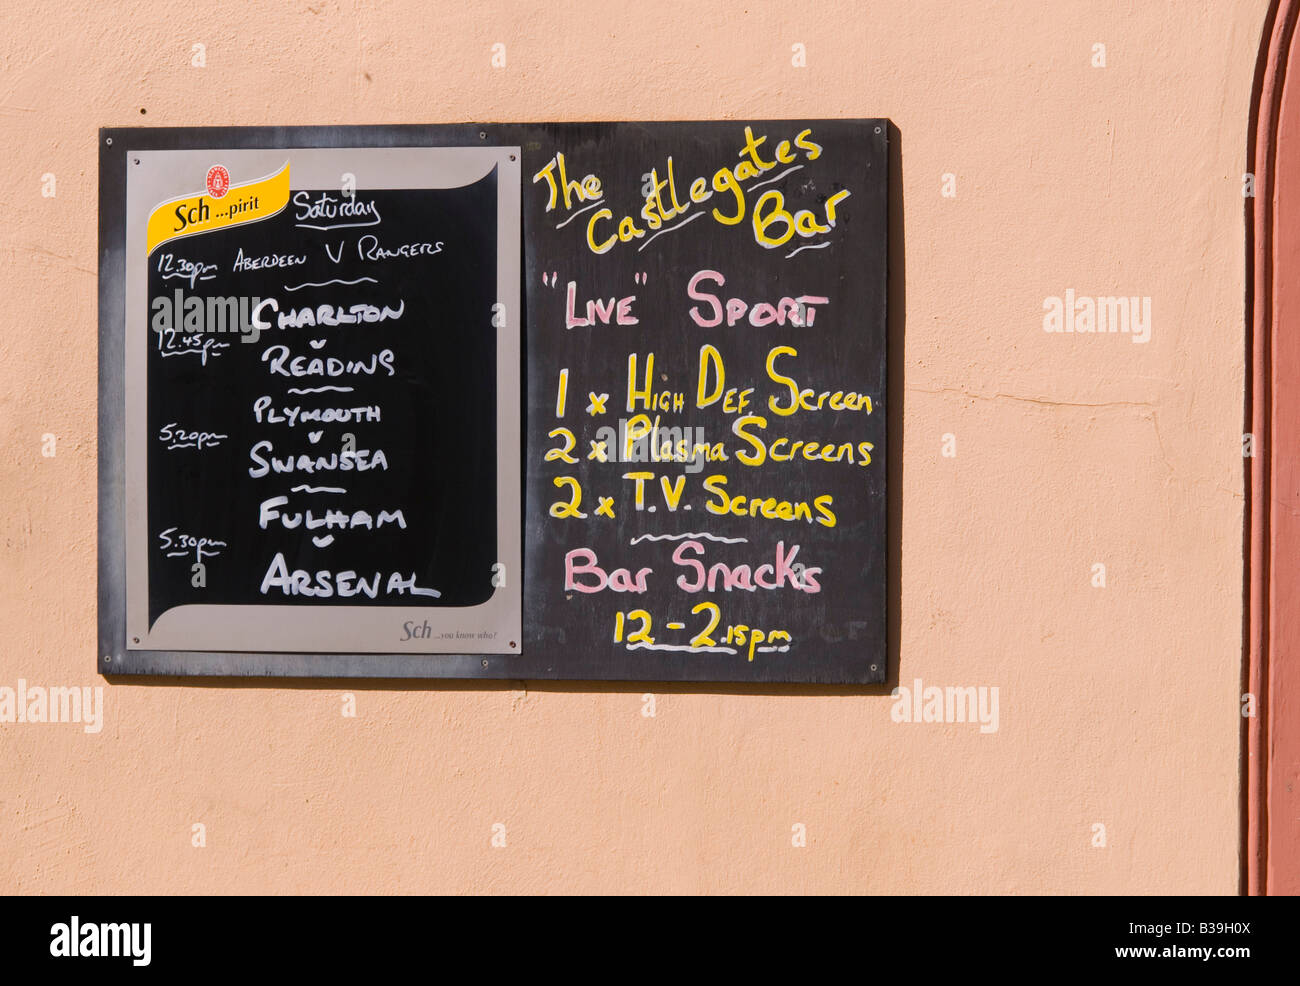 Sch ...pirit
Saturday
12.30pm ABERDEEN V RANGERS
CHARLTON
12.45pm v
READING
PLYMOUTH
5.20pm v
SWANSEA
FULHAM
5.30pm v
ARSENAL
Sch ...you know who?
The Castlegates Bar
"LIVE" SPORT
1 x HIGH DEF. Screen
2 x Plasma Screens
2 x T.V. Screens
Bar Snacks
12 - 2.15pm
alamy
alamy
Image ID: B39H0X
www.alamy.com